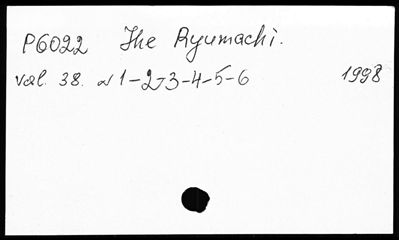 P6022 The Ryumachi.
vol. 38. N 1-2-3-4-5-6 1998